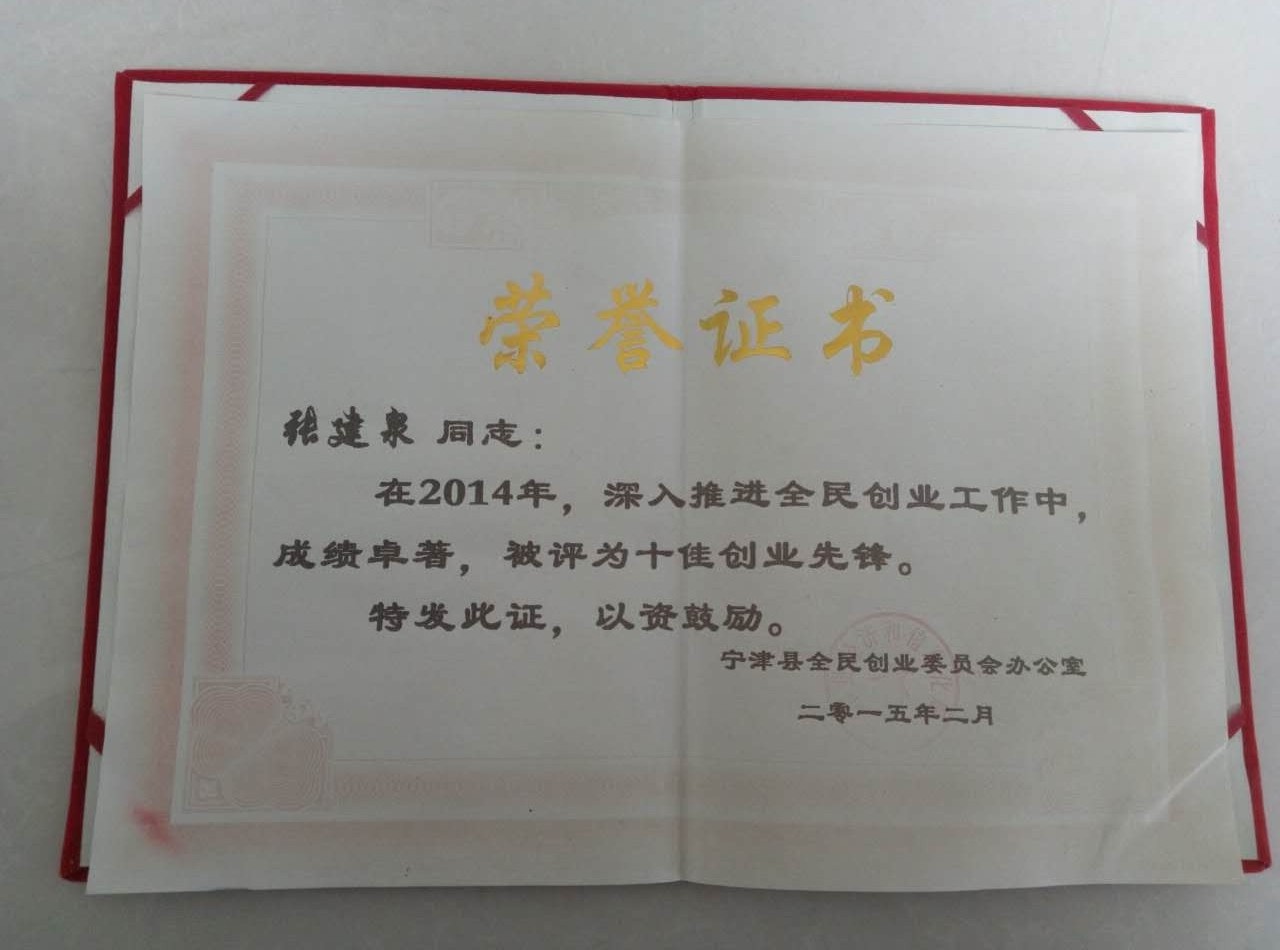 荣誉证书
张建泉 同志：
在2014年，深入推进全民创业工作中，
成绩卓著，被评为十佳创业先锋。
特发此证，以资鼓励。
宁津县全民创业委员会办公室
二零一五年二月